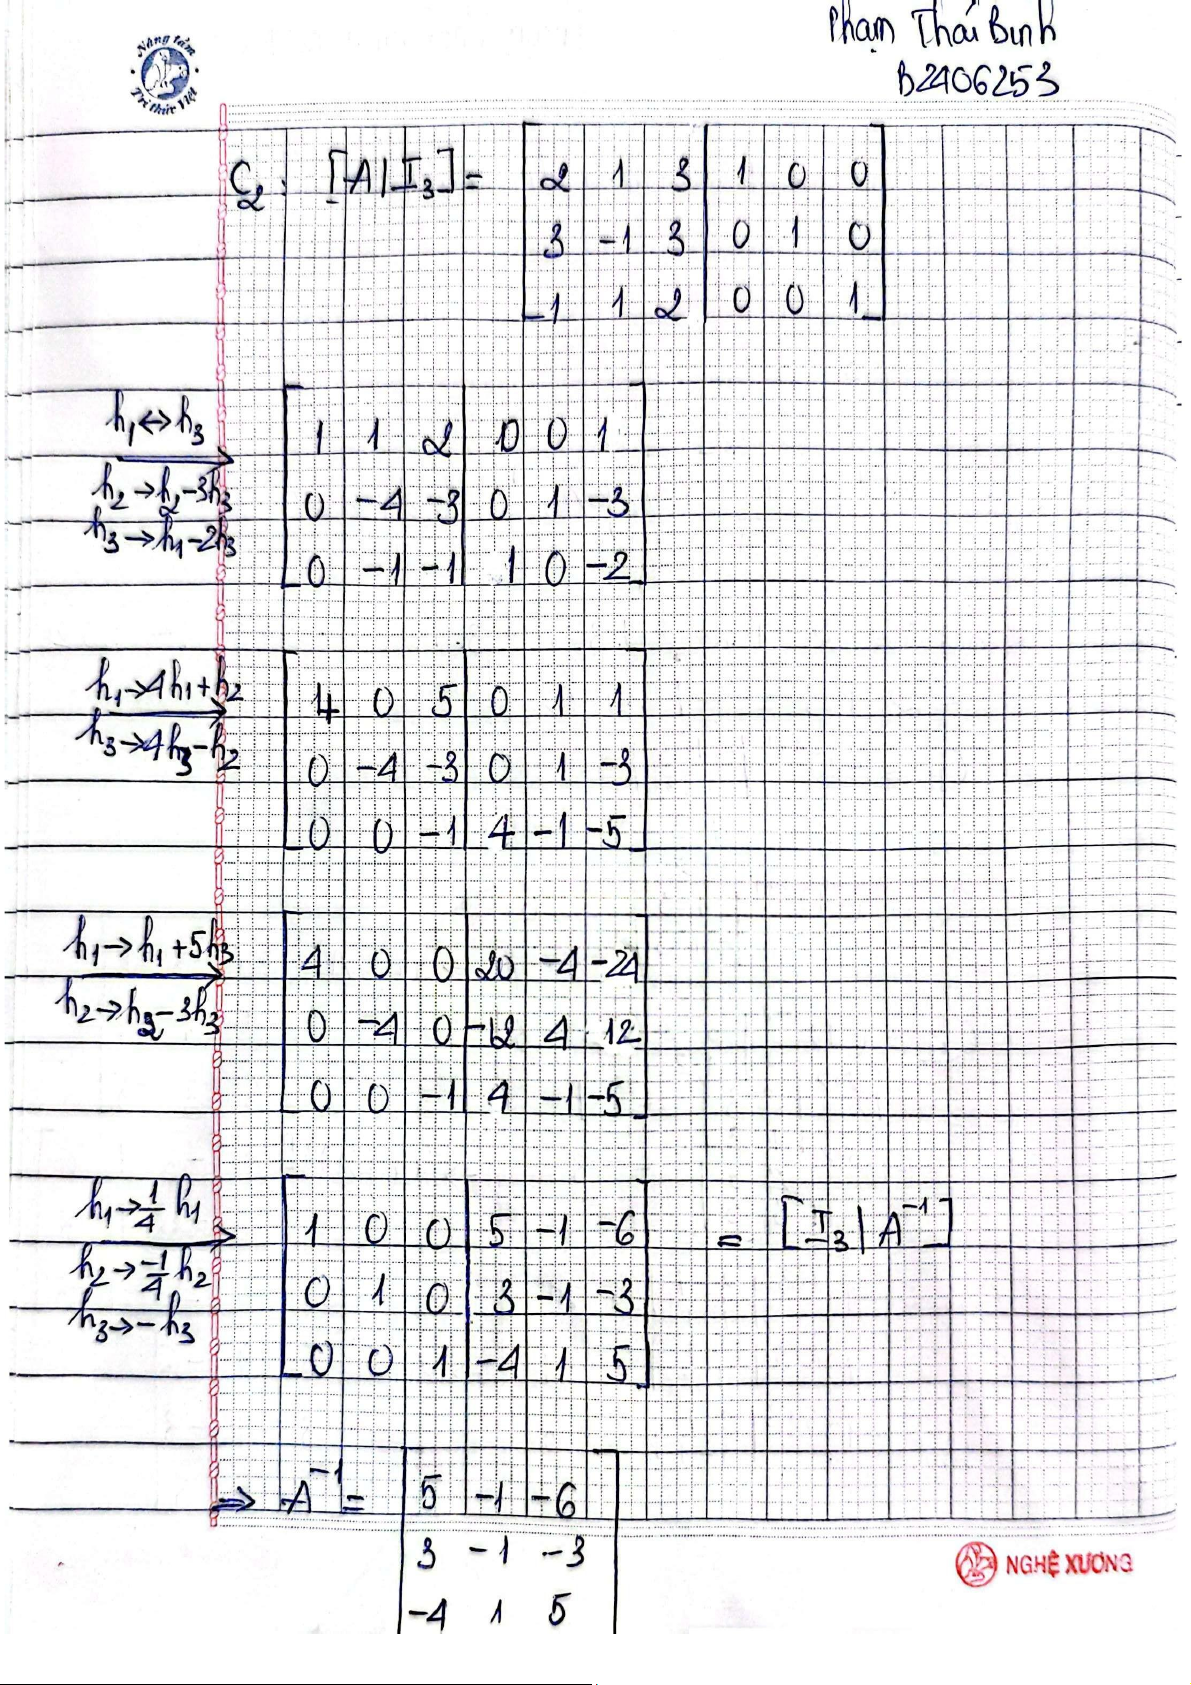 Phạm Thái Bình
B2406253
Nâng tầm
Tri thức Việt
C2: [A|I3] = [ 2 1 3 | 1 0 0 ]
3 -1 3 | 0 1 0
1 1 2 | 0 0 1
h1 ↔ h3
h2 → h2 - 3h3
h3 → h1 - 2h3
1 1 2 | 0 0 1
0 -4 -3 | 0 1 -3
0 -1 -1 | 1 0 -2
h1 → 4h1 + h2
h3 → 4h3 - h2
4 0 5 | 0 1 1
0 -4 -3 | 0 1 -3
0 0 -1 | 4 -1 -5
h1 → h1 + 5h3
h2 → h2 - 3h3
4 0 0 | 20 -4 -24
0 -4 0 | -12 4 12
0 0 -1 | 4 -1 -5
h1 → 1/4 h1
h2 → -1/4 h2
h3 → -h3
1 0 0 | 5 -1 -6 = [I3|A⁻¹]
0 1 0 | 3 -1 -3
0 0 1 | -4 1 5
⇒ A⁻¹ = 5 -1 -6
3 -1 -3
-4 1 5
NGHỆ XƯƠNG